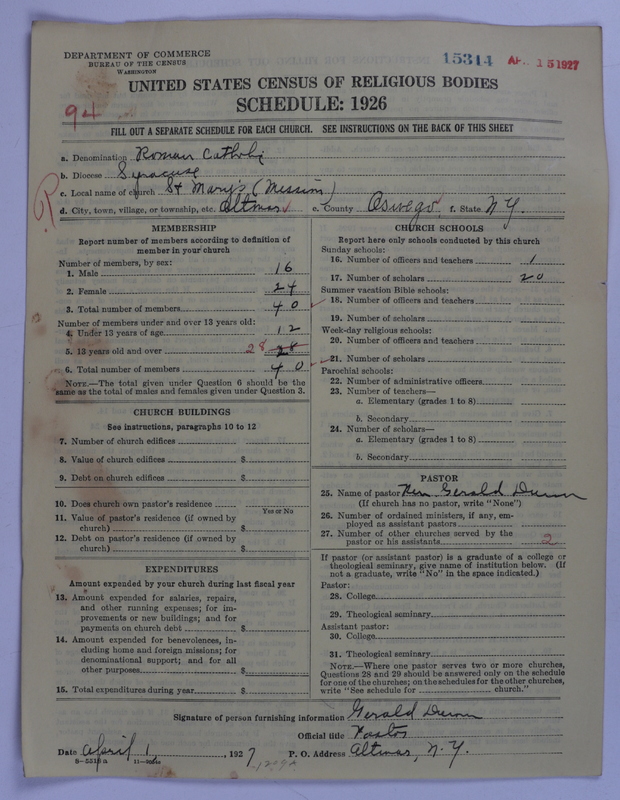 DEPARTMENT OF COMMERCE
BUREAU OF THE CENSUS
WASHINGTON
15314 AP 15 1927
UNITED STATES CENSUS OF RELIGIOUS BODIES
SCHEDULE: 1926
94
FILL OUT A SEPARATE SCHEDULE FOR EACH CHURCH. SEE INSTRUCTIONS ON THE BACK OF THIS SHEET
a. Denomination Roman Catholic
b. Diocese Syracuse
c. Local name of church St Mary's (Mission)
d. City, town, village, or township, etc. Altmar e. County Oswego f. State N.Y.
MEMBERSHIP
Report number of members according to definition of
member in your church
Number of members, by sex:
1. Male 16
2. Female 24
3. Total number of members 40
Number of members under and over 13 years old:
4. Under 13 years of age 12
5. 13 years old and over 28 28
6. Total number of members 40
NOTE.—The total given under Question 6 should be the
same as the total of males and females given under Question 3.
CHURCH BUILDINGS
See instructions, paragraphs 10 to 12
7. Number of church edifices
8. Value of church edifices $
9. Debt on church edifices $
10. Does church own pastor's residence
Yes or No
11. Value of pastor's residence (if owned by
church) $
12. Debt on pastor's residence (if owned by
church) $
EXPENDITURES
Amount expended by your church during last fiscal year
13. Amount expended for salaries, repairs,
and other running expenses; for im-
provements or new buildings; and for
payments on church debt $
14. Amount expended for benevolences, in-
cluding home and foreign missions; for
denominational support; and for all
other purposes $
15. Total expenditures during year $
CHURCH SCHOOLS
Report here only schools conducted by this church
Sunday schools:
16. Number of officers and teachers 1
17. Number of scholars 20
Summer vacation Bible schools:
18. Number of officers and teachers
19. Number of scholars
Week-day religious schools:
20. Number of officers and teachers
21. Number of scholars
Parochial schools:
22. Number of administrative officers
23. Number of teachers—
a. Elementary (grades 1 to 8)
b. Secondary
24. Number of scholars—
a. Elementary (grades 1 to 8)
b. Secondary
PASTOR
25. Name of pastor Rev. Gerald Dunn
(If church has no pastor, write "None")
26. Number of ordained ministers, if any, em-
ployed as assistant pastors
27. Number of other churches served by the
pastor or his assistants 2
If pastor (or assistant pastor) is a graduate of a college or
theological seminary, give name of institution below. (If
not a graduate, write "No" in the space indicated.)
Pastor:
28. College
29. Theological seminary
Assistant pastor:
30. College
31. Theological seminary
NOTE.—Where one pastor serves two or more churches,
Questions 28 and 29 should be answered only on the schedule
for one of the churches; on the schedules for the other churches,
write "See schedule for church."
Signature of person furnishing information Gerald Dunn
Official title Pastor
Date April 1, 1927 P. O. Address Altmar, N.Y.
8—5313 a